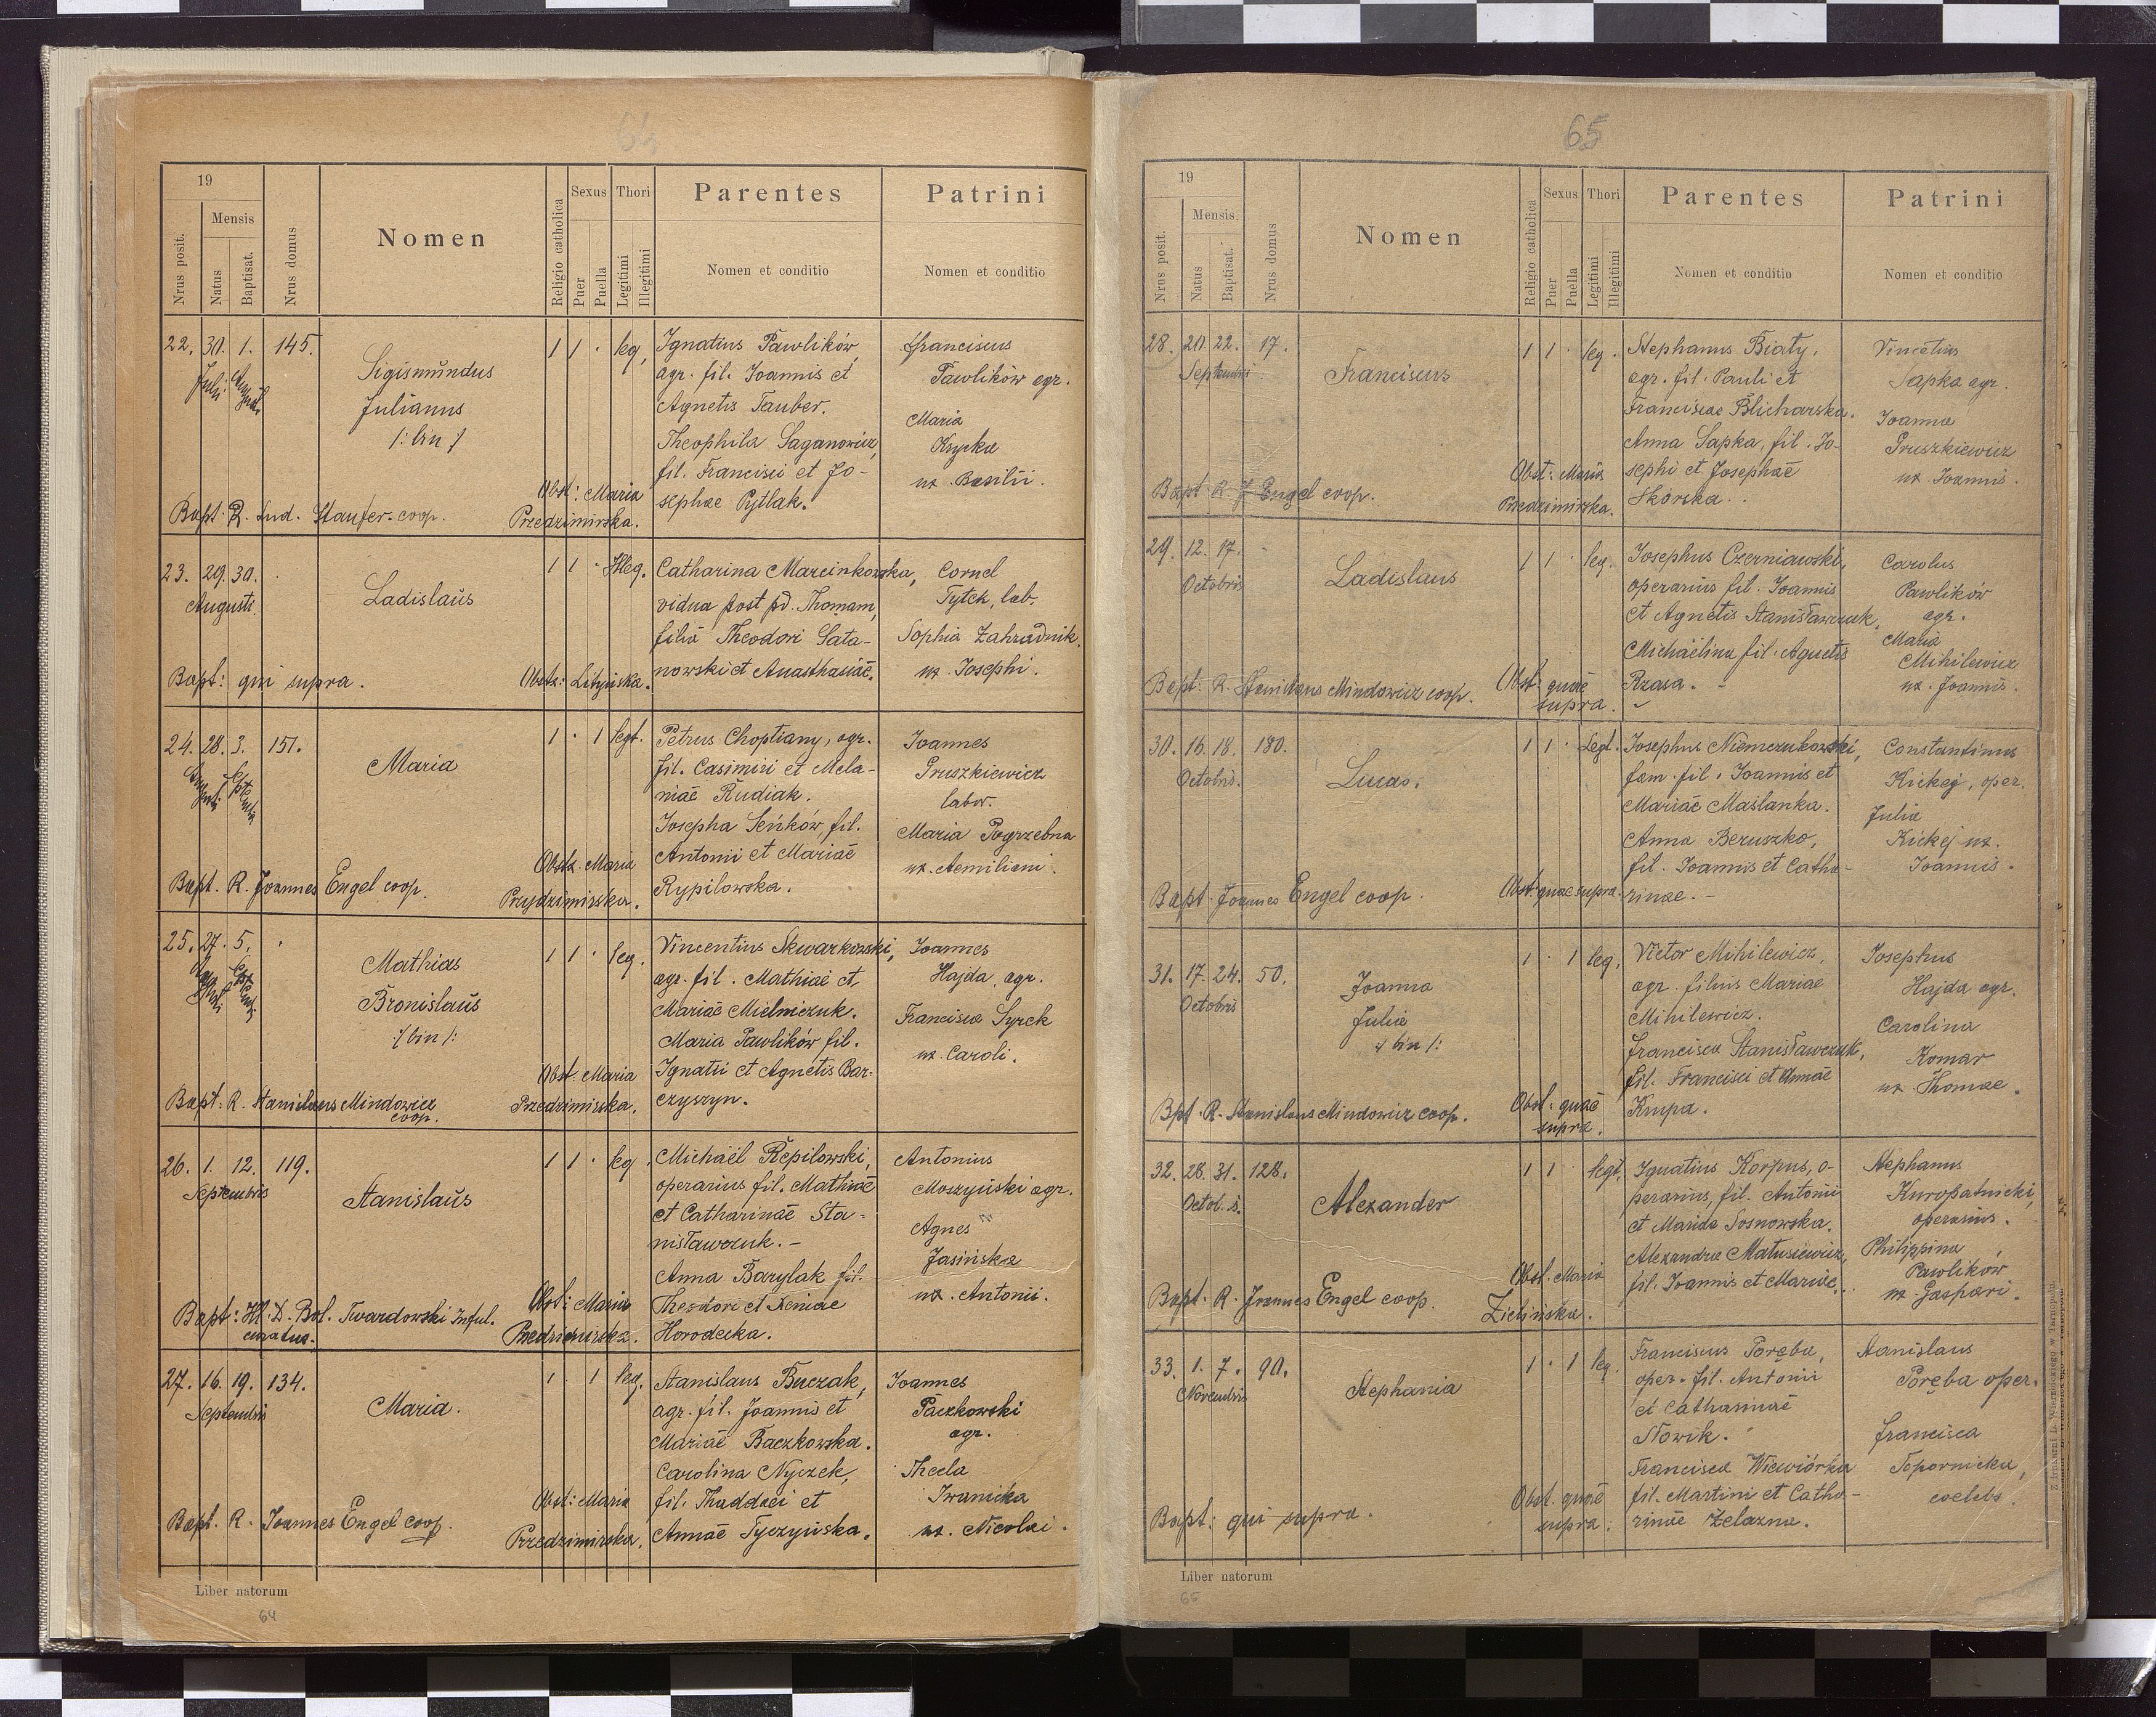 64
19
Mensis
Nrus posit.
Natus
Baptisat.
Nrus domus
Nomen
Religio catholica
Sexus
Puer
Puella
Thori
Legitimi
Illegitimi
Parentes
Nomen et conditio
Patrini
Nomen et conditio
22. 30. 1. 145.
Juli Augusti
Sigismundus
Julianus
/: bin :/
1 1 · leg.
Ignatius Pawlików,
agr. fil. Joannis et
Agnetis Tauber.
Theophila Saganowicz,
fil. Francisci et Jo-
sephae Pytlak.
Franciscus
Pawlików agr.
Maria
Krycka
ux. Basilii.
Obst: Maria
Przedzimirska.
Bapt. R. Lud. Staufer coop.
23. 29. 30. ·
Augusti.
Ladislaus
1 1 · Illeg.
Catharina Marcinkowska,
vidua post pd. Thomam,
filia Theodori Sata-
nowski et Anasthasiae.
Cornel
Tytck, lab.
Sophia Zahradnik
ux. Josephi.
Obstx: Letyńska.
Bapt: qui supra.
24. 28. 3. 151.
Augusti Septembris
Maria
1 · 1 legt.
Petrus Choptiany, agr.
fil. Casimiri et Mela-
niae Rudiak.
Josepha Seńków, fil.
Antonii et Mariae
Rypilowska.
Joannes
Pruszkiewicz
labor.
Maria Pogrzebna
ux. Aemiliani.
Obstx Maria
Przydzimirska.
Bapt. R. Joannes Engel coop.
25. 27. 5. ·
Augusti Septembris
Mathias
Bronislaus
:/ bin /:
1 1 · leg.
Vincentius Skwarkowski,
agr. fil. Mathiae et
Mariae Mielniczuk.
Maria Pawlików fil.
Ignatii et Agnetis Bar-
czyszyn.
Joannes
Hajda, agr.
Francisca Syrek
ux. Caroli.
Obst: Maria
Przedzimirska.
Bapt: R. Stanislaus Mindowicz
coop.
26. 1. 12. 119.
Septembris
Stanislaus
1 1 · leg.
Michaël Repilowski,
operarius fil. Mathiae
et Catharinae Sta-
nisławczuk. -
Anna Barylak fil.
Theodori et Xeniae
Horodecka.
Antonius
Moszyński agr.
Agnes
Jasińska
ux. Antonii.
Obst: Maria
Przedzimirska.
Bapt: Ill. D. Bol. Twardowski Inful.
curatus.
27. 16. 19. 134.
Septembris
Maria.
1 · 1 leg.
Stanislaus Buczak,
agr. fil. Joannis et
Mariae Baczkowska.
Carolina Nyczek,
fil. Thaddaei et
Annae Tyczyńska.
Joannes
Paczkowski
agr.
Thecla
Iwanicka
ux. Nicolai.
Obst: Maria
Przedzimirska.
Bapt. R. Joannes Engel coop.
Liber natorum
64
65
19
Mensis.
Nrus posit.
Natus
Baptisat.
Nrus domus
Nomen
Religio catholica
Sexus
Puer
Puella
Thori
Legitimi
Illegitimi
Parentes
Nomen et conditio
Patrini
Nomen et conditio
28. 20. 22. 17.
Septembris
Franciscus
1 1 · leg.
Stephanus Biały.
agr. fil. Pauli et
Franciscae Blicharska.
Anna Sapka, fil. Jo-
sephi et Josephae
Skórska.
Vincetius
Sapka agr.
Joanna
Pruszkiewicz
ux Joannis.
Obst: Maria
Przedzimirska.
Bapt R. J Engel coop.
29. 12. 17. -
Octobris
Ladislaus
1 1 · leg.
Josephus Czerniawski,
operarius fil. Joannis
et Agnetis Stanisławczuk,
Michaëlina fil. Agnetis
Rzasa. -
Carolus
Pawlików
agr.
Maria
Mihilewicz
ux. Joannis.
Obst: quae
supra.
Bapt: R. Stanislaus Mindowicz coop.
30. 16. 18. 180.
Octobris.
Lucas.
1 1 · Legt.
Josephus Niemczukowski,
fam. fil. Joannis et
Mariae Maślanka.
Anna Beruszko,
fil. Joannis et Catha-
rinae. -
Constantinus
Kickej, oper.
Julia
Kickej ux.
Joannis.
Obst: quae supra.
Bapt. Joannes Engel coop.
31. 17. 24. 50.
Octobris
Joanna
Julia
:/ bin /:
1 · 1 leg.
Victor Mihilewicz,
agr. filius Mariae
Mihilewicz.
Francisca Stanisławczuk,
fil. Francisci et Annae
Krupa.
Josephus
Hajda agr.
Carolina
Komar
ux Thomae.
Obst: quae
supra.
Bpt. R. Stanislaus Mindowicz coop.
32. 28. 31. 128.
Octob. is.
Alexander
1 1 · legt.
Ignatius Korpus, o-
perarius, fil. Antonii
et Mariae Sosnowska.
Alexandra Matusiewicz,
fil. Joannis et Mariae.
Stephanus
Kuropatnicki,
operarius.
Philippina
Pawlików
ux Gaspari.
Obst. Maria
Zielińska.
Bapt. R. Joannes Engel coop.
33. 1. 7. 90.
Novembris
Stephania
1 · 1 leg.
Franciscus Poręba,
oper. fil. Antonii
et Catharinae
Nowik.
Francisca Wiewiórka
fil. Martini et Catha-
rinae Zelazna.
Stanislaus
Poręba oper.
Francisca
Topornicka,
coelebs.
Obst. quae
supra.
Bapt: qui supra.
Liber natorum
65